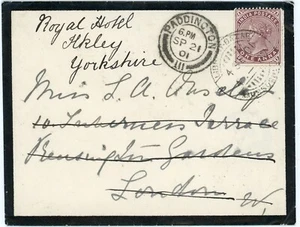 Royal Hotel
Ilkley
Yorkshire
PADDINGTON
6.PM
SP 21
01
III
INDIA POSTAGE
ONE ANNA
Miss L. A.
10 Inverness Terrace
Kensington Gardens
London W.